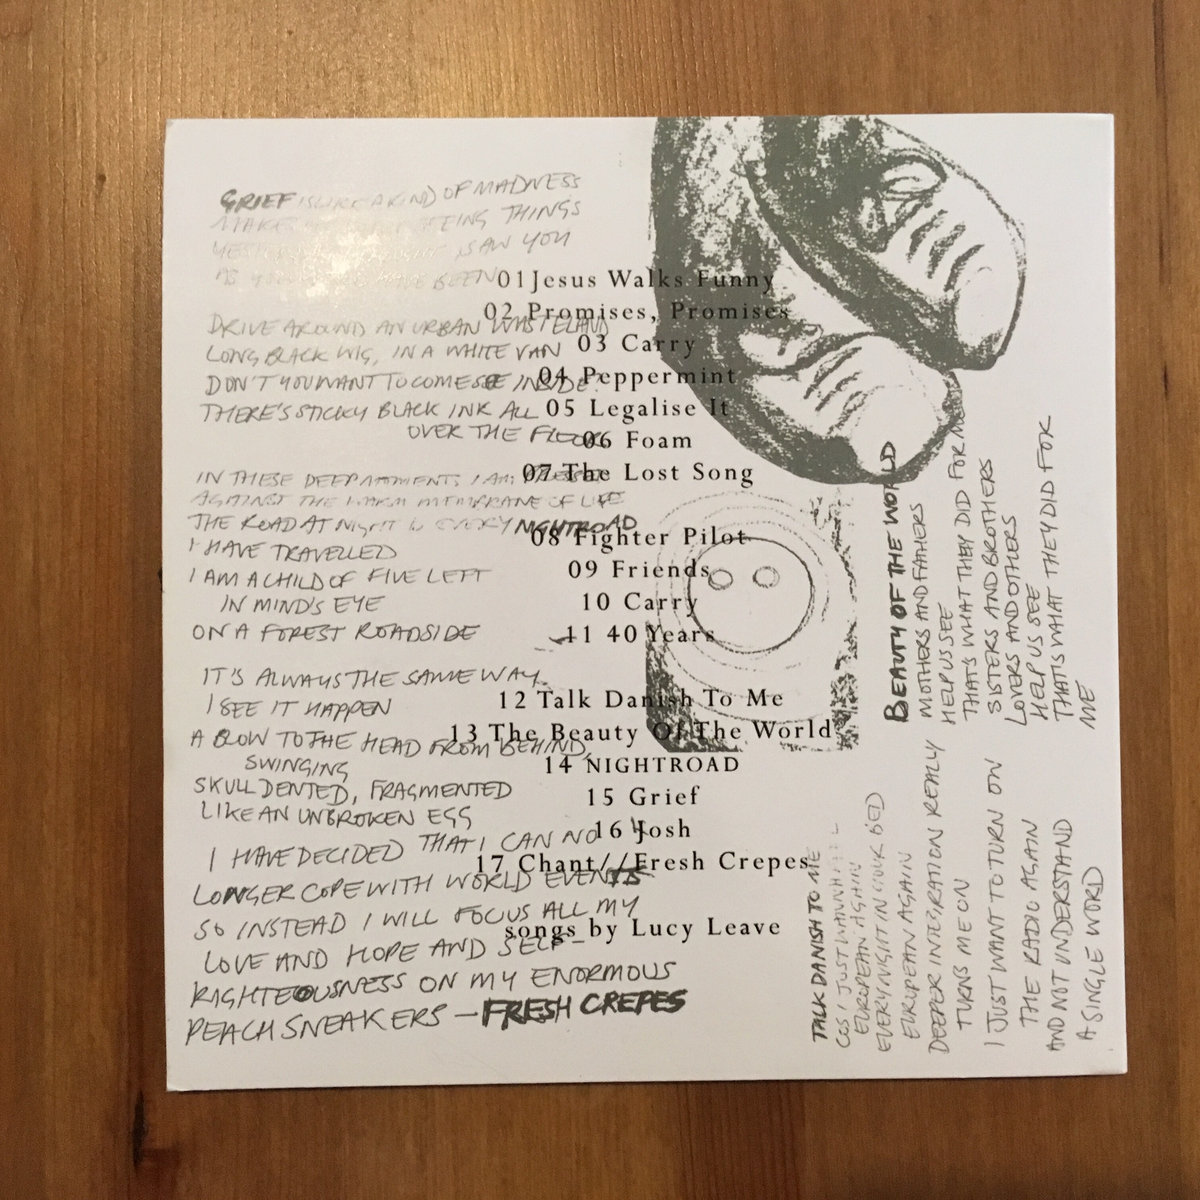 GRIEF IS LIKE A KIND OF MADNESS
MAKES SEEING THINGS
SAW YOU
AS YOU HAVE BEEN
DRIVE AROUND AN URBAN WASTELAND
LONG BLACK WIG, IN A WHITE VAN
DON'T YOU WANT TO COME SEE INSIDE?
THERE'S STICKY BLACK INK ALL
OVER THE FLOOR
IN THESE DEEP MOMENTS I AM PRESSED
AGAINST THE WARM MEMBRANE OF LIFE
THE ROAD AT NIGHT IS EVERY NIGHTROAD
I HAVE TRAVELLED
I AM A CHILD OF FIVE LEFT
IN MIND'S EYE
ON A FOREST ROADSIDE
IT'S ALWAYS THE SAME WAY
I SEE IT HAPPEN
A BLOW TO THE HEAD FROM BEHIND,
SWINGING
SKULL DENTED, FRAGMENTED
LIKE AN UNBROKEN EGG
I HAVE DECIDED THAT I CAN NO
LONGER COPE WITH WORLD EVENTS
SO INSTEAD I WILL FOCUS ALL MY
LOVE AND HOPE AND SELF-
RIGHTEOUSNESS ON MY ENORMOUS
PEACH SNEAKERS — FRESH CREPES
01 Jesus Walks Funny
02 Promises, Promises
03 Carry
04 Peppermint
05 Legalise It
06 Foam
07 The Lost Song
08 Fighter Pilot
09 Friends
10 Carry
11 40 Years
12 Talk Danish To Me
13 The Beauty Of The World
14 NIGHTROAD
15 Grief
16 Josh
17 Chant//Fresh Crepes
songs by Lucy Leave
BEAUTY OF THE WORLD
MOTHERS AND FATHERS
HELP US SEE
THAT'S WHAT THEY DID FOR ME
SISTERS AND BROTHERS
LOVERS AND OTHERS
HELP US SEE
THAT'S WHAT THEY DID FOR
ME
TALK DANISH TO ME
COS I JUST WANNA
EUROPEAN AGAIN
EVERY NIGHT IN YOUR BED
EUROPEAN AGAIN
DEEPER INTEGRATION REALLY
TURNS ME ON
I JUST WANT TO TURN ON
THE RADIO AGAIN
AND NOT UNDERSTAND
A SINGLE WORD